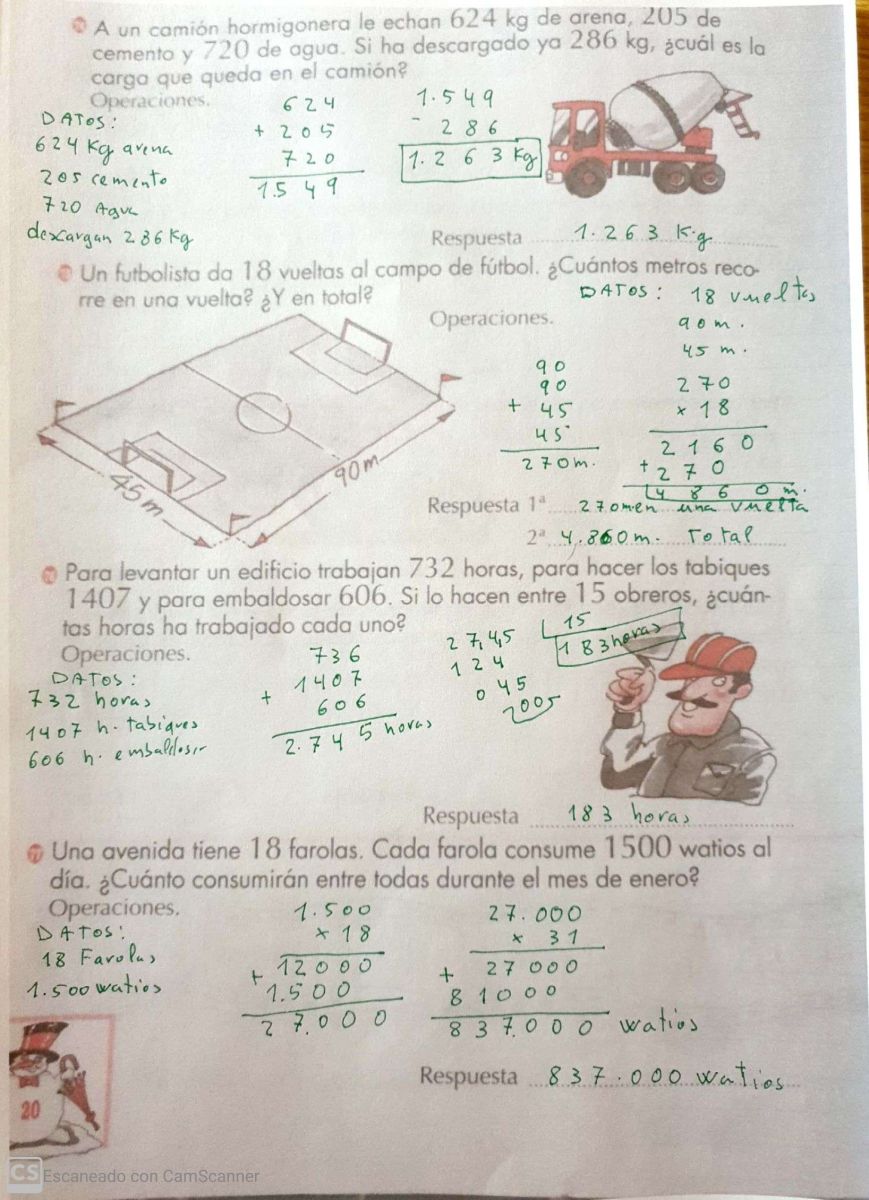 A un camión hormigonera le echan 624 kg de arena, 205 de
cemento y 720 de agua. Si ha descargado ya 286 kg, ¿cuál es la
carga que queda en el camión?
Operaciones.
DATOS:
624 Kg arena
205 cemento
720 Agua
descargan 286 Kg
624
+ 205
720
1.549
1.549
- 286
1.263 Kg
Respuesta 1.263 Kg
Un futbolista da 18 vueltas al campo de fútbol. ¿Cuántos metros reco-
rre en una vuelta? ¿Y en total?
DATOS: 18 vueltas
90 m.
45 m.
Operaciones.
90
90
+ 45
45
270 m.
270
× 18
2160
+ 270
4860 m.
45 m
90 m
Respuesta 1ª 270 m en una vuelta
2ª 4.860 m. Total
Para levantar un edificio trabajan 732 horas, para hacer los tabiques
1407 y para embaldosar 606. Si lo hacen entre 15 obreros, ¿cuán-
tas horas ha trabajado cada uno?
Operaciones.
DATOS:
732 horas
1407 h. tabiques
606 h. embaldosar
736
1407
+ 606
2.745 horas
2745 15
124 183 horas
045
005
Respuesta 183 horas
77 Una avenida tiene 18 farolas. Cada farola consume 1500 watios al
día. ¿Cuánto consumirán entre todas durante el mes de enero?
Operaciones.
DATOS:
18 Farolas
1.500 watios
1.500
× 18
+ 12000
1.500
27.000
27.000
× 31
+ 27000
81000
837.000 watios
Respuesta 837.000 watios
20
CS Escaneado con CamScanner